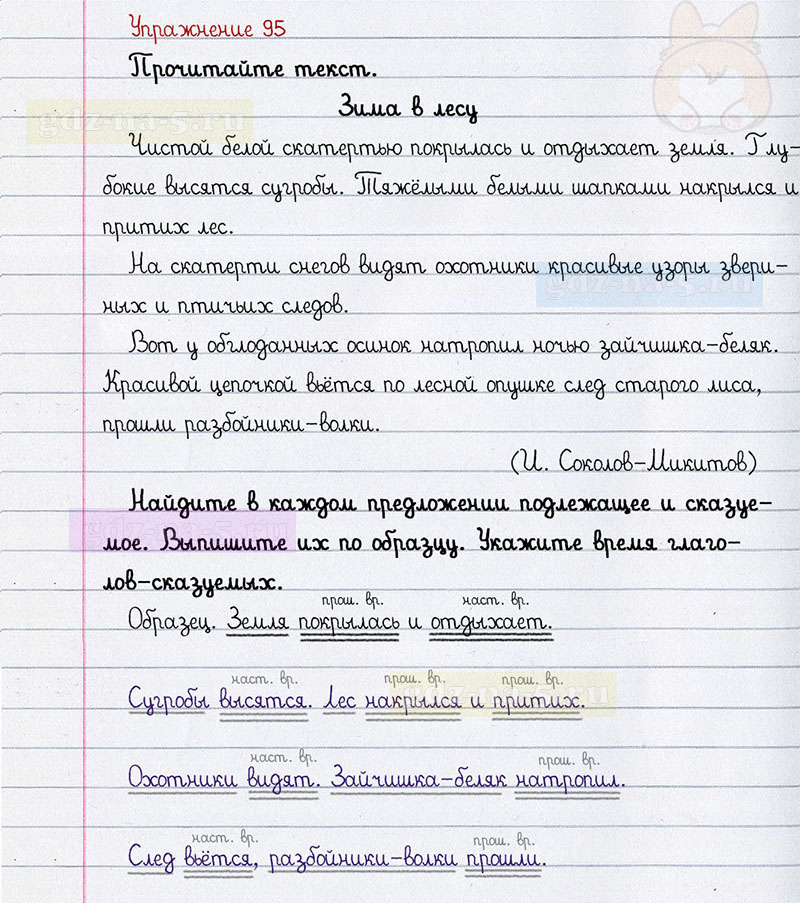 Упражнение 95
Прочитайте текст.
Зима в лесу
gdz-na-5.ru
Чистой белой скатертью покрылась и отдыхает земля. Глу-
бокие высятся сугробы. Тяжёлыми белыми шапками накрылся и
притих лес.
На скатерти снегов видят охотники красивые узоры звери-
gdz-na-5.ru
ных и птичьих следов.
Вот у обглоданных осинок натропил ночью зайчишка-беляк.
Красивой цепочкой вьётся по лесной опушке след старого лиса,
прошли разбойники-волки.
(И. Соколов-Микитов)
Найдите в каждом предложении подлежащее и сказуе-
gdz-na-5.ru
мое. Выпишите их по образцу. Укажите время глаго-
лов-сказуемых.
прош. вр. наст. вр.
Образец. Земля покрылась и отдыхает.
наст. вр. прош. вр. прош. вр.
gdz-na-5.ru
Сугробы высятся. Лес накрылся и притих.
наст. вр. прош. вр.
Охотники видят. Зайчишка-беляк натропил.
наст. вр. прош. вр.
След вьётся, разбойники-волки прошли.